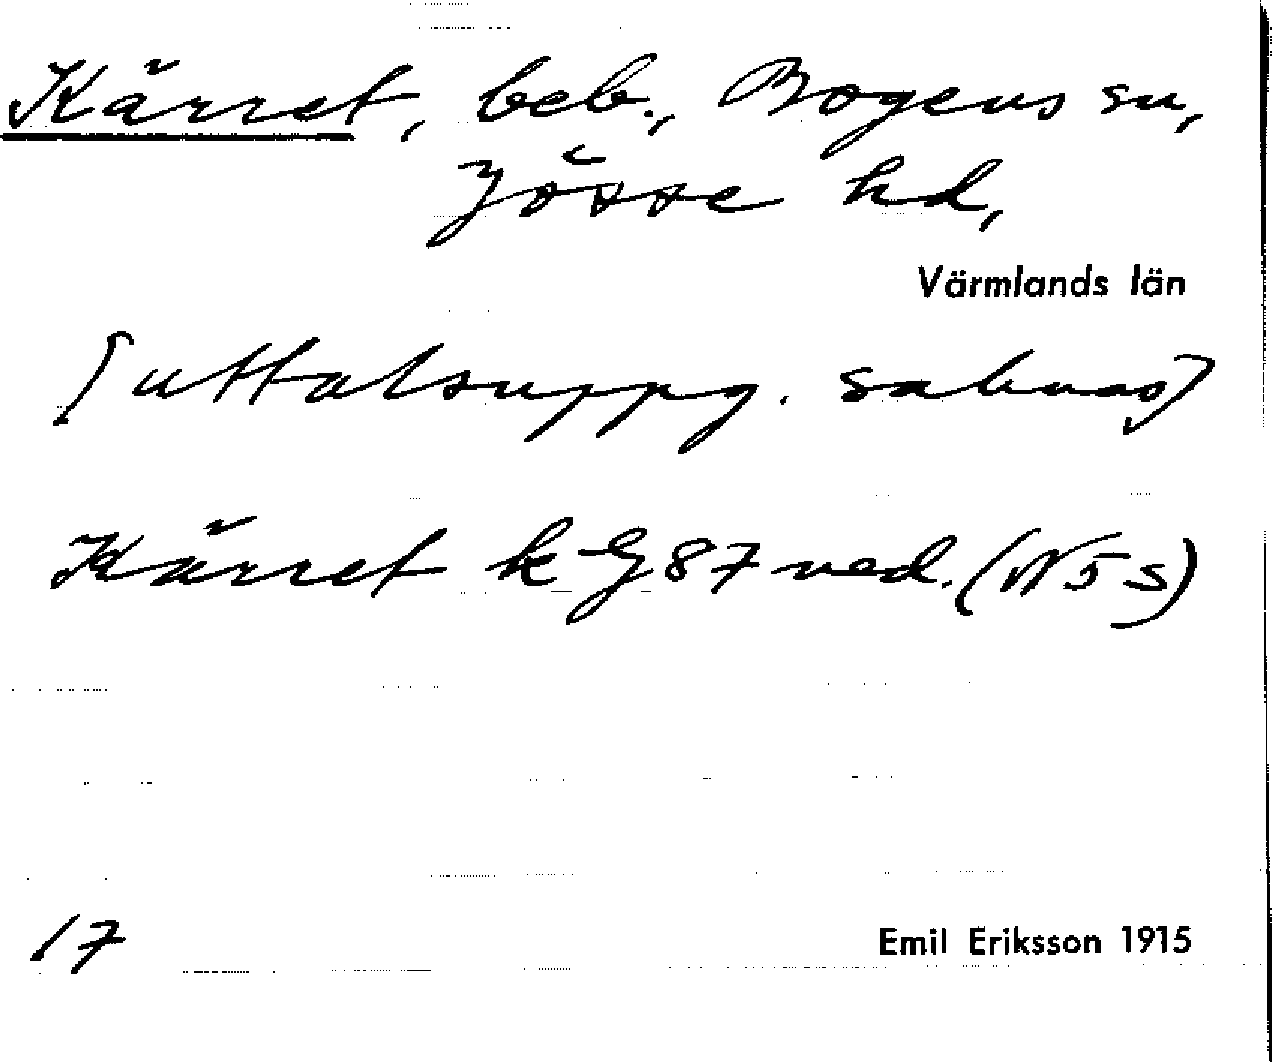 Kärret, beb., Bogens sn,
Jösse hd,
Värmlands län
[uttalsuppg. saknas]
Kärret k G 87 ned. (N 5 s)
17
Emil Eriksson 1915